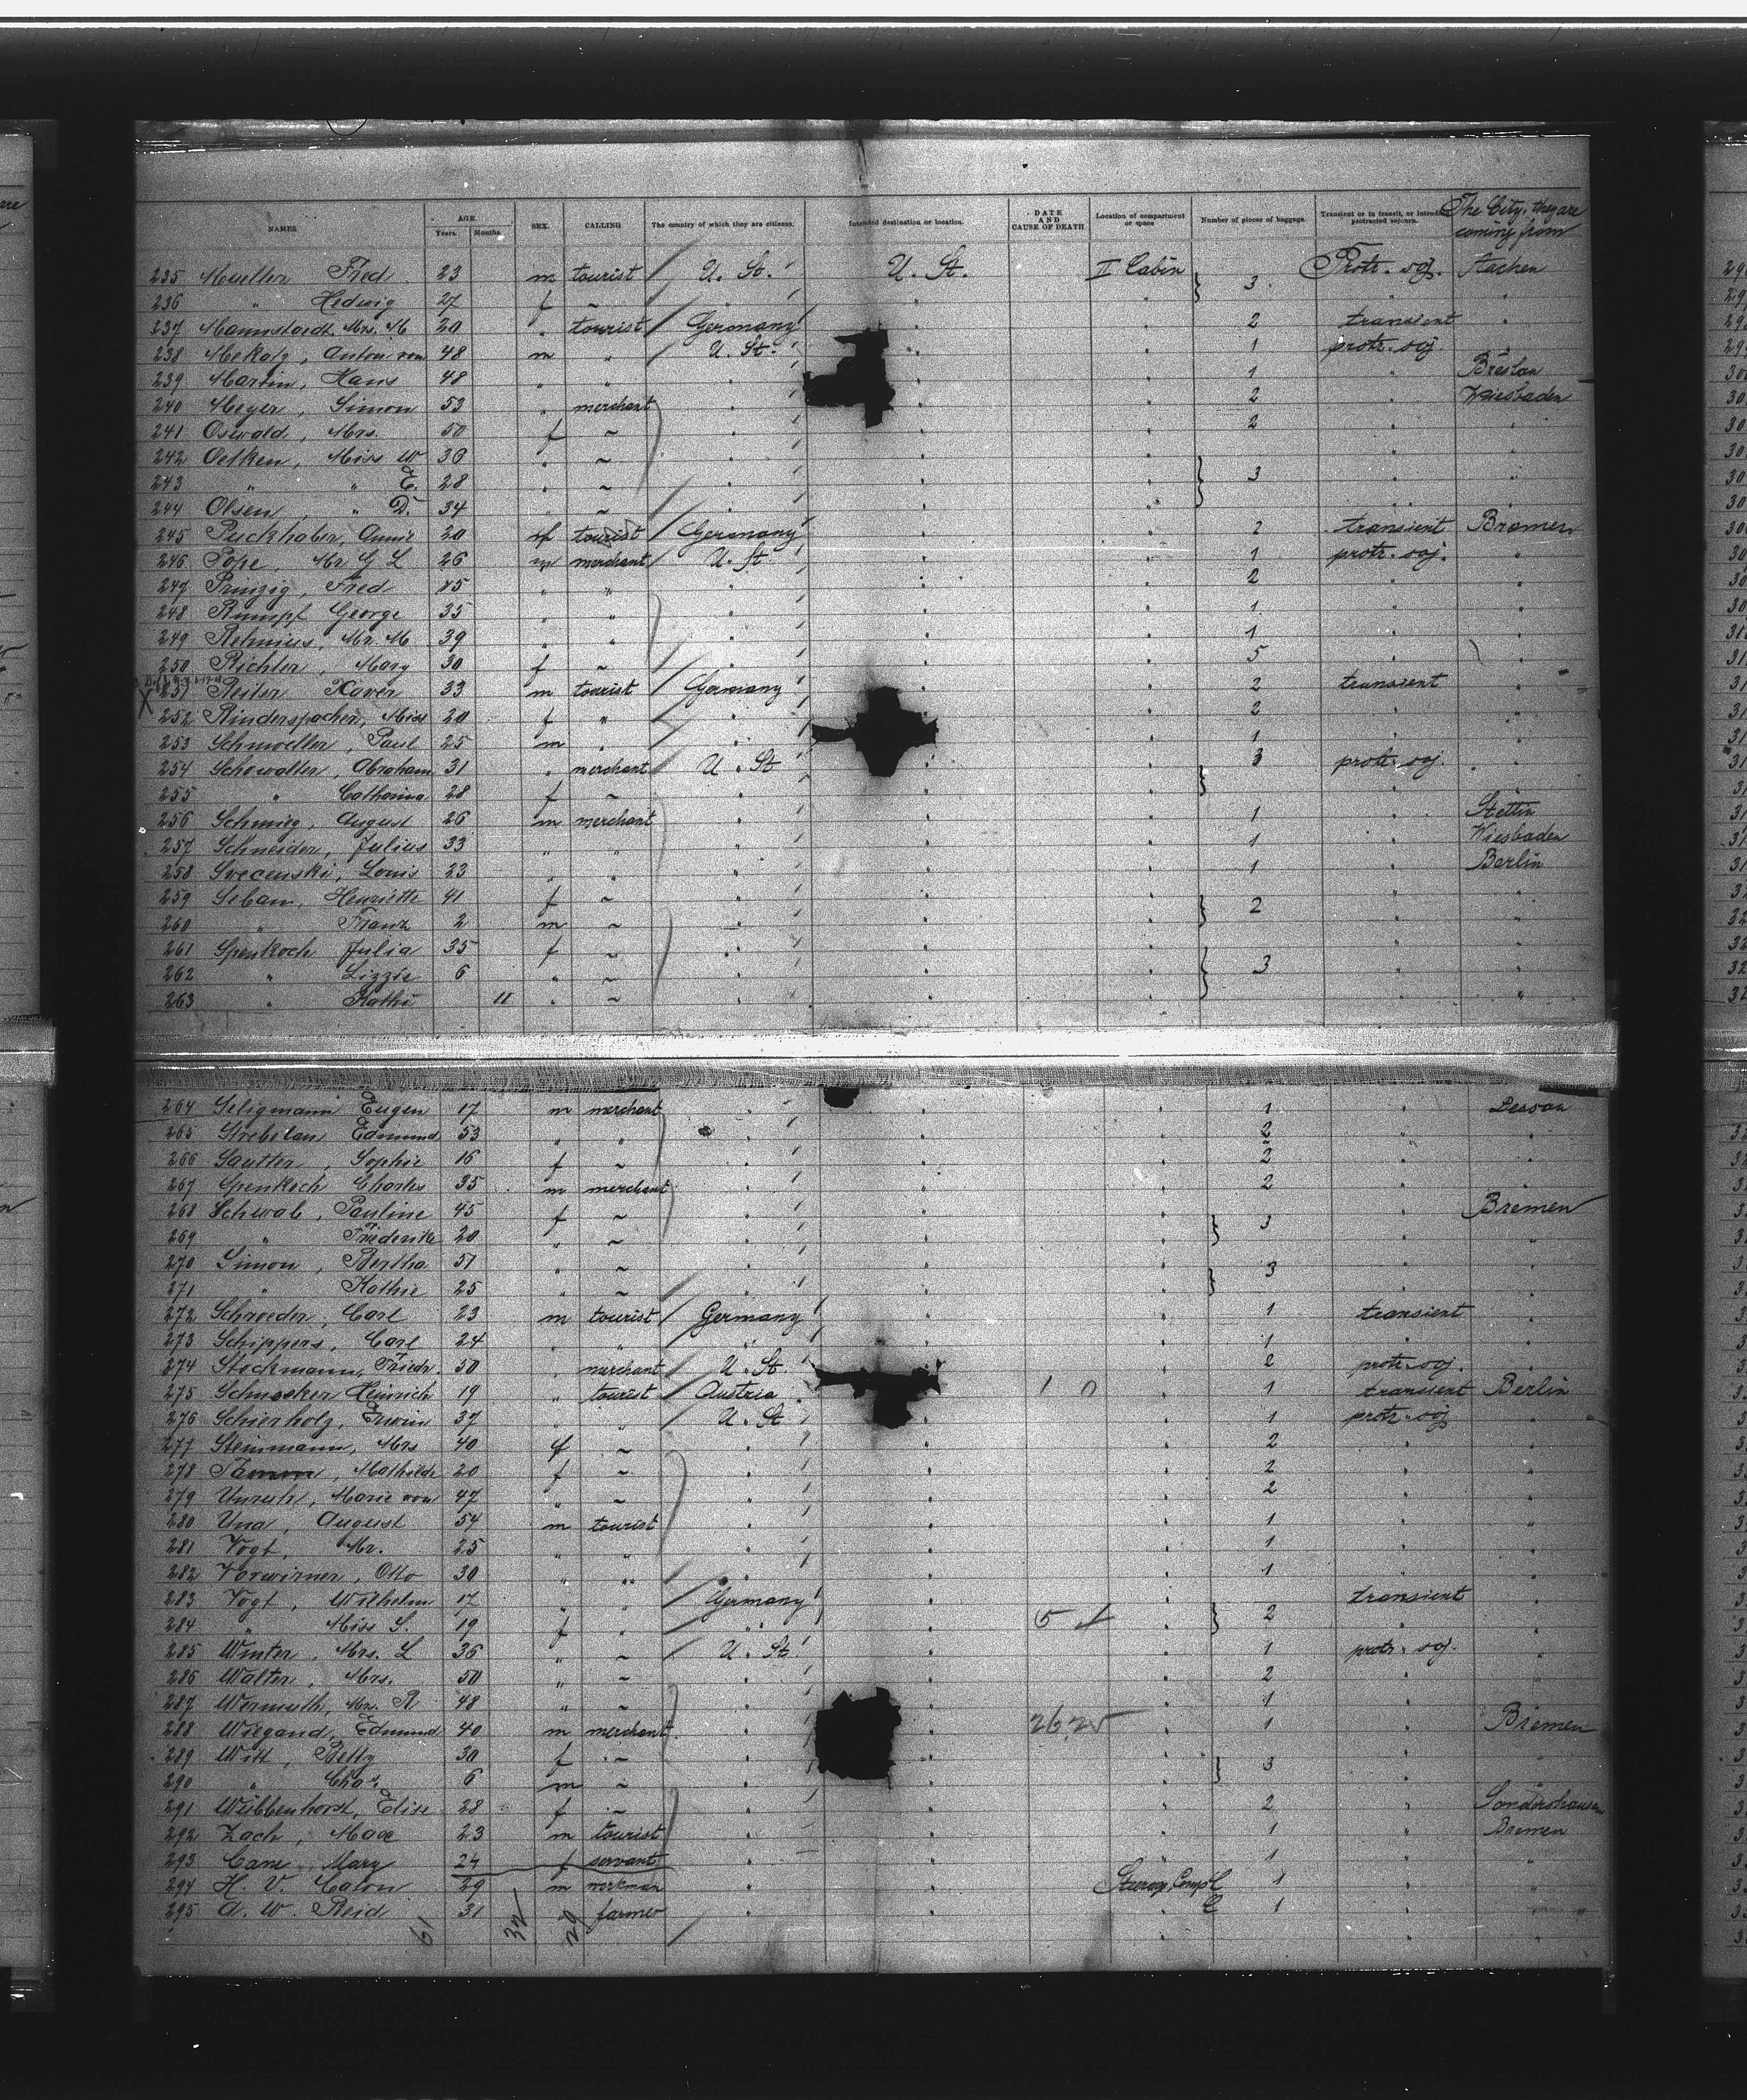 NAMES AGE. Years. Months. SEX. CALLING The country of which they are citizens. Intended destination or location. DATE AND CAUSE OF DEATH Location of compartment or space Number of pieces of baggage. Transient or in transit, or intended protracted sojourn. The City they are coming from
235 Mueller Fred 23 m tourist U. St. U. St. II Cabin 3 Protr. soj.
236 " Hedwig 27 f ~
237 Mrs. M 20 tourist Germany 2 transient
238 Anton von 48 m " U. St. 1 protr. soj.
239 Martin, Hans 48 " " 1 Breslau
240 Meyer, Simon 53 " merchant 2 Wiesbaden
241 Oswald, Mrs. 50 f ~ 2
242 Oetken, Miss W 36 " ~
243 " " E. 28 " ~ 3
244 Olsen, " D. 34 " ~
245 Puckhaber, Annie 20 f tourist Germany 2 transient Bremen
246 Pope, Mr G L 26 m merchant U. St. 1 protr. soj. "
247 Prinzig, Fred 45 " " 2
248 Rumpf George 35 " " 1
249 Mr. M 39 " " 1
250 Richter, Mary 30 f ~ 5
X 251 Reiter Xaver 33 m tourist Germany 2 transient
252 Rinderspacher, Miss 20 f " 2
253 Schmoeller, Paul 25 m " 1
254 Schowalter, Abraham 31 " merchant U. St 3 protr. soj.
255 " Catharina 28 f ~
256 August 26 m merchant 1 Stettin
257 Schneider, Julius 33 " " 1 Wiesbaden
258 Svecenski, Louis 23 " " 1 Berlin
259 Henriette 41 f ~ 2
260 " Franz 2 m ~
261 Spenkoch Julia 35 f ~
262 " Lizzie 6 " ~ 3
263 " 11 " ~
264 Seligmann Eugen 17 m merchant 1
265 Edmund 53 " " 2
266 Sautter, Sophie 16 f ~ 2
267 Spenkoch Charles 35 m merchant 2
268 Schwab, Pauline 45 f ~ 3 Bremen
269 " Friederike 20 " ~
270 Simon, Bertha 51 " ~ 3
271 " Kathie 25 " ~
272 Schroeder, Carl 23 m tourist Germany 1 transient
273 Schippers, Carl 24 " " " 1
274 Stockmann, Friedr. 50 " merchant U. St. 2 protr. soj.
275 Heinrich 19 " tourist Austria 1 0 1 transient Berlin
276 Schierholz, Erwin 37 " " U. St 1 protr. soj.
277 Steinmann, Mrs 40 f ~ 2
278 Mathilde 20 f ~ 2
279 Unruh, Marie von 47 " ~ 2
280 August 54 m tourist 1
281 Vogt, Mr. 25 " " 1
282 Otto 30 " " 1
283 Vogt, Wilhelm 17 " " Germany transient
284 " Miss S. 19 f " " 5 2
285 Winter, Mrs. L 36 " ~ U. St. 1 protr. soj.
286 Walter, Mrs. 50 " ~ 2
287 Wermuth, R 48 " ~ 1
288 Wiegand, Edmund 40 m merchant 1 Bremen
289 Witt, Betty 30 f ~ 3
290 " Chas. 6 m ~
291 Wübbenhorst, Elise 28 f ~ 2 Sondershausen
292 Zach, Max 23 m tourist 1 Bremen
293 Cane, Mary 24 f servant 1
294 H. V. 29 m workman 1
295 A. W. Reid 31 " farmer 1
61 32 29